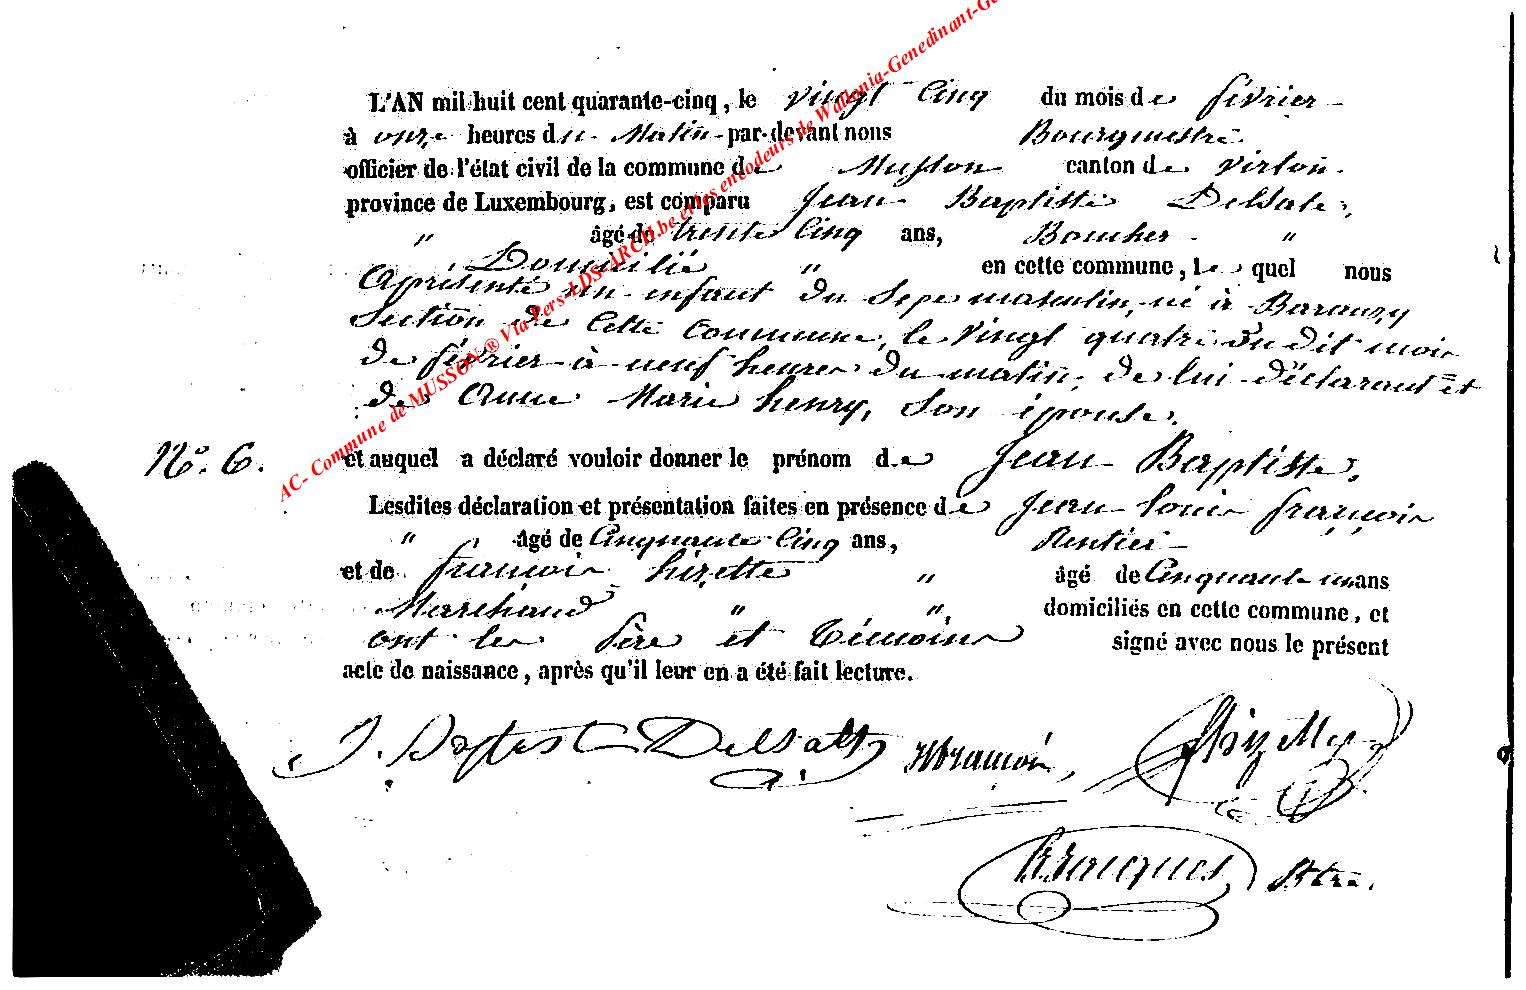 L'AN mil huit cent quarante-cinq, le vingt Cinq du mois de février
à onze heures du Matin par-devant nous Bourgmestre
officier de l'état civil de la commune de Musson canton de Virton
province de Luxembourg, est comparu Jean Baptiste Delsate,
" âgé de trente Cinq ans, Boucher "
Domicilié " en cette commune, le quel nous
a présenté un enfant du sexe masculin, né à Baranzy
Section de Cette Commune, le vingt quatre du dit mois
de février à neuf heures du matin, de lui déclarant et
de Anne Marie henry, son épouse.
N.° 6. et auquel a déclaré vouloir donner le prénom de Jean Baptiste.
Lesdites déclaration et présentation faites en présence de Jean louis françois
" âgé de Cinquante Cinq ans, Rentier
et de françois hizette " âgé de Cinquante un ans
Marchand " " domiciliés en cette commune, et
ont les Père et témoins signé avec nous le présent
acte de naissance, après qu'il leur en a été fait lecture.
J. Baptist Delsatte
AC- Commune de MUSSON ® Via Pers-LDS-ARCH.be et les encodeurs de Wallonia-Genedinant-Ge